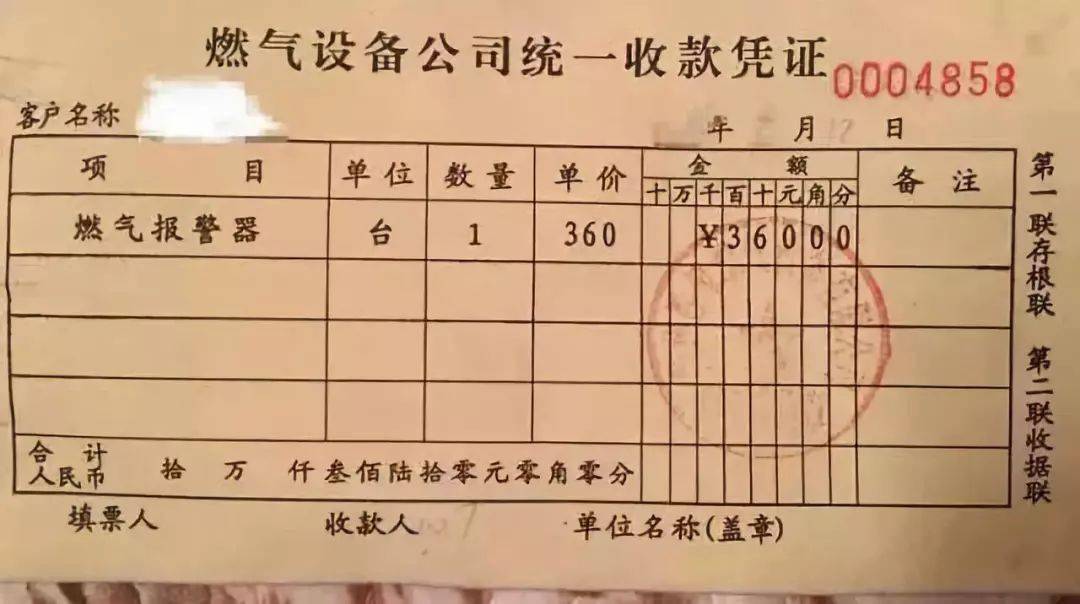 燃气设备公司统一收款凭证 0004858
客户名称
年 月 12 日
项 目 单位 数量 单价 金 额 备 注
十 万 千 百 十 元 角 分
燃气报警器 台 1 360 ¥36000
合 计
人民币 拾 万 仟叁佰陆拾零元零角零分
填票人 收款人 单位名称(盖章)
第一联存根联 第二联收据联